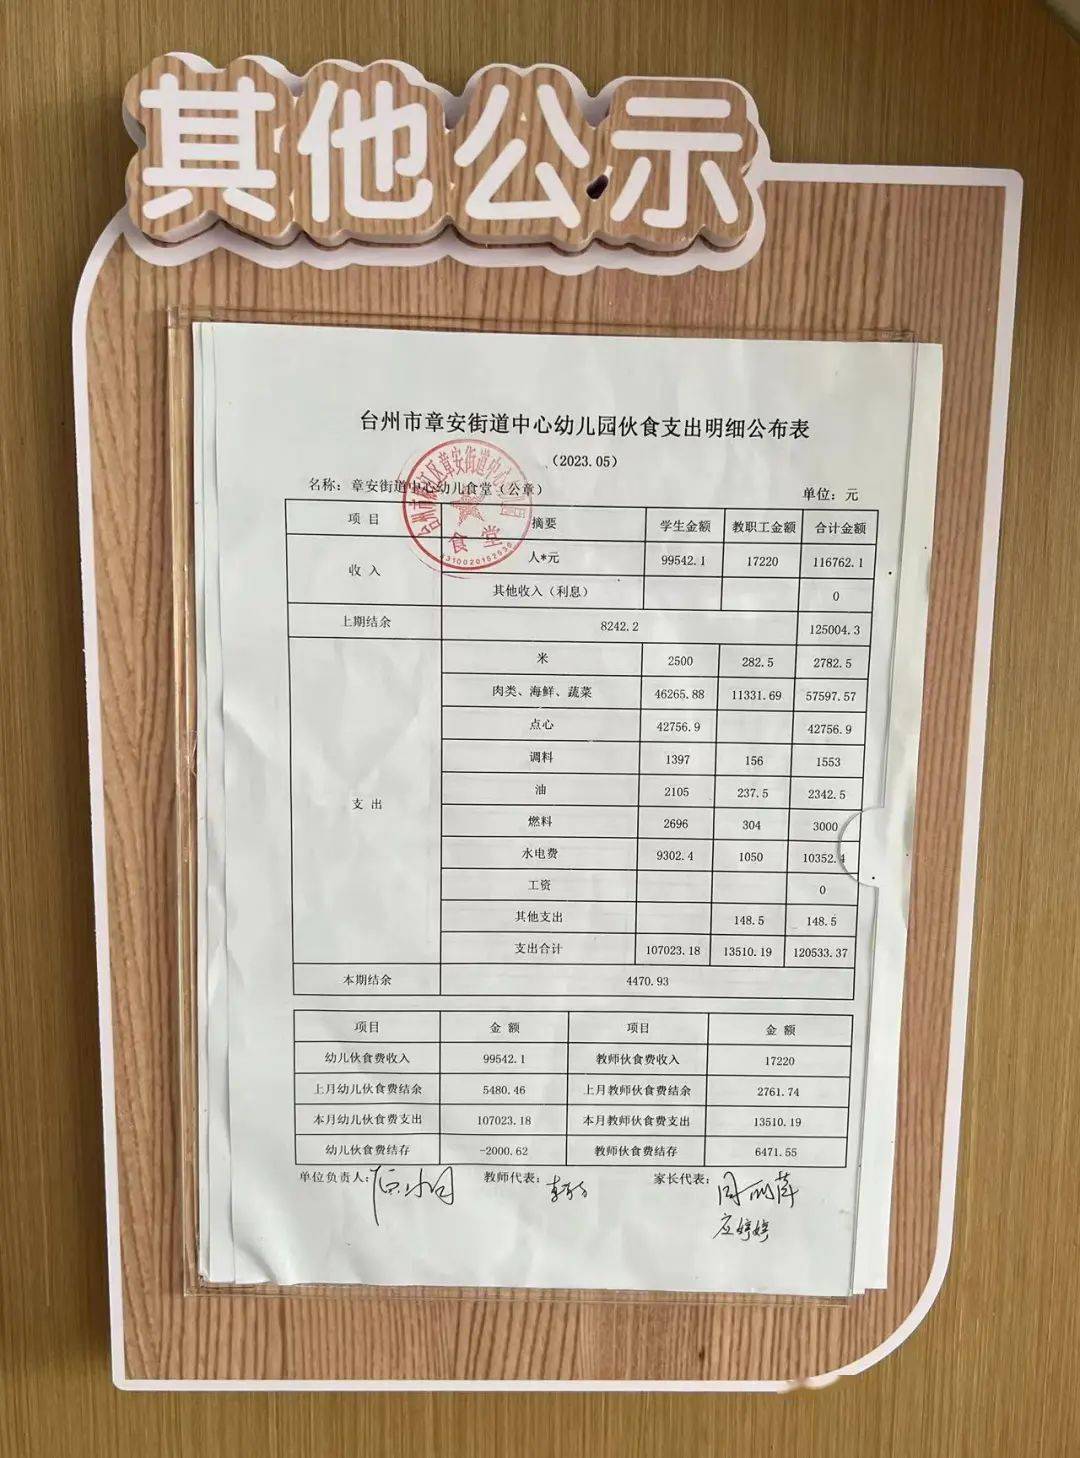 其他公示
台州市章安街道中心幼儿园伙食支出明细公布表
（2023.05）
名称：章安街道中心幼儿食堂（公章） 单位：元
食堂
项 目 摘要 学生金额 教职工金额 合计金额
收 入 人*元 99542.1 17220 116762.1
其他收入（利息） 0
上期结余 8242.2 125004.3
支 出 米 2500 282.5 2782.5
肉类、海鲜、蔬菜 46265.88 11331.69 57597.57
点心 42756.9 42756.9
调料 1397 156 1553
油 2105 237.5 2342.5
燃料 2696 304 3000
水电费 9302.4 1050 10352.4
工资 0
其他支出 148.5 148.5
支出合计 107023.18 13510.19 120533.37
本期结余 4470.93
项目 金 额 项目 金 额
幼儿伙食费收入 99542.1 教师伙食费收入 17220
上月幼儿伙食费结余 5480.46 上月教师伙食费结余 2761.74
本月幼儿伙食费支出 107023.18 本月教师伙食费支出 13510.19
幼儿伙食费结存 -2000.62 教师伙食费结存 6471.55
单位负责人： 教师代表： 家长代表：
应婷婷